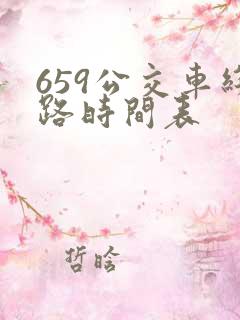 659公交車綫
路時間表
哲晗